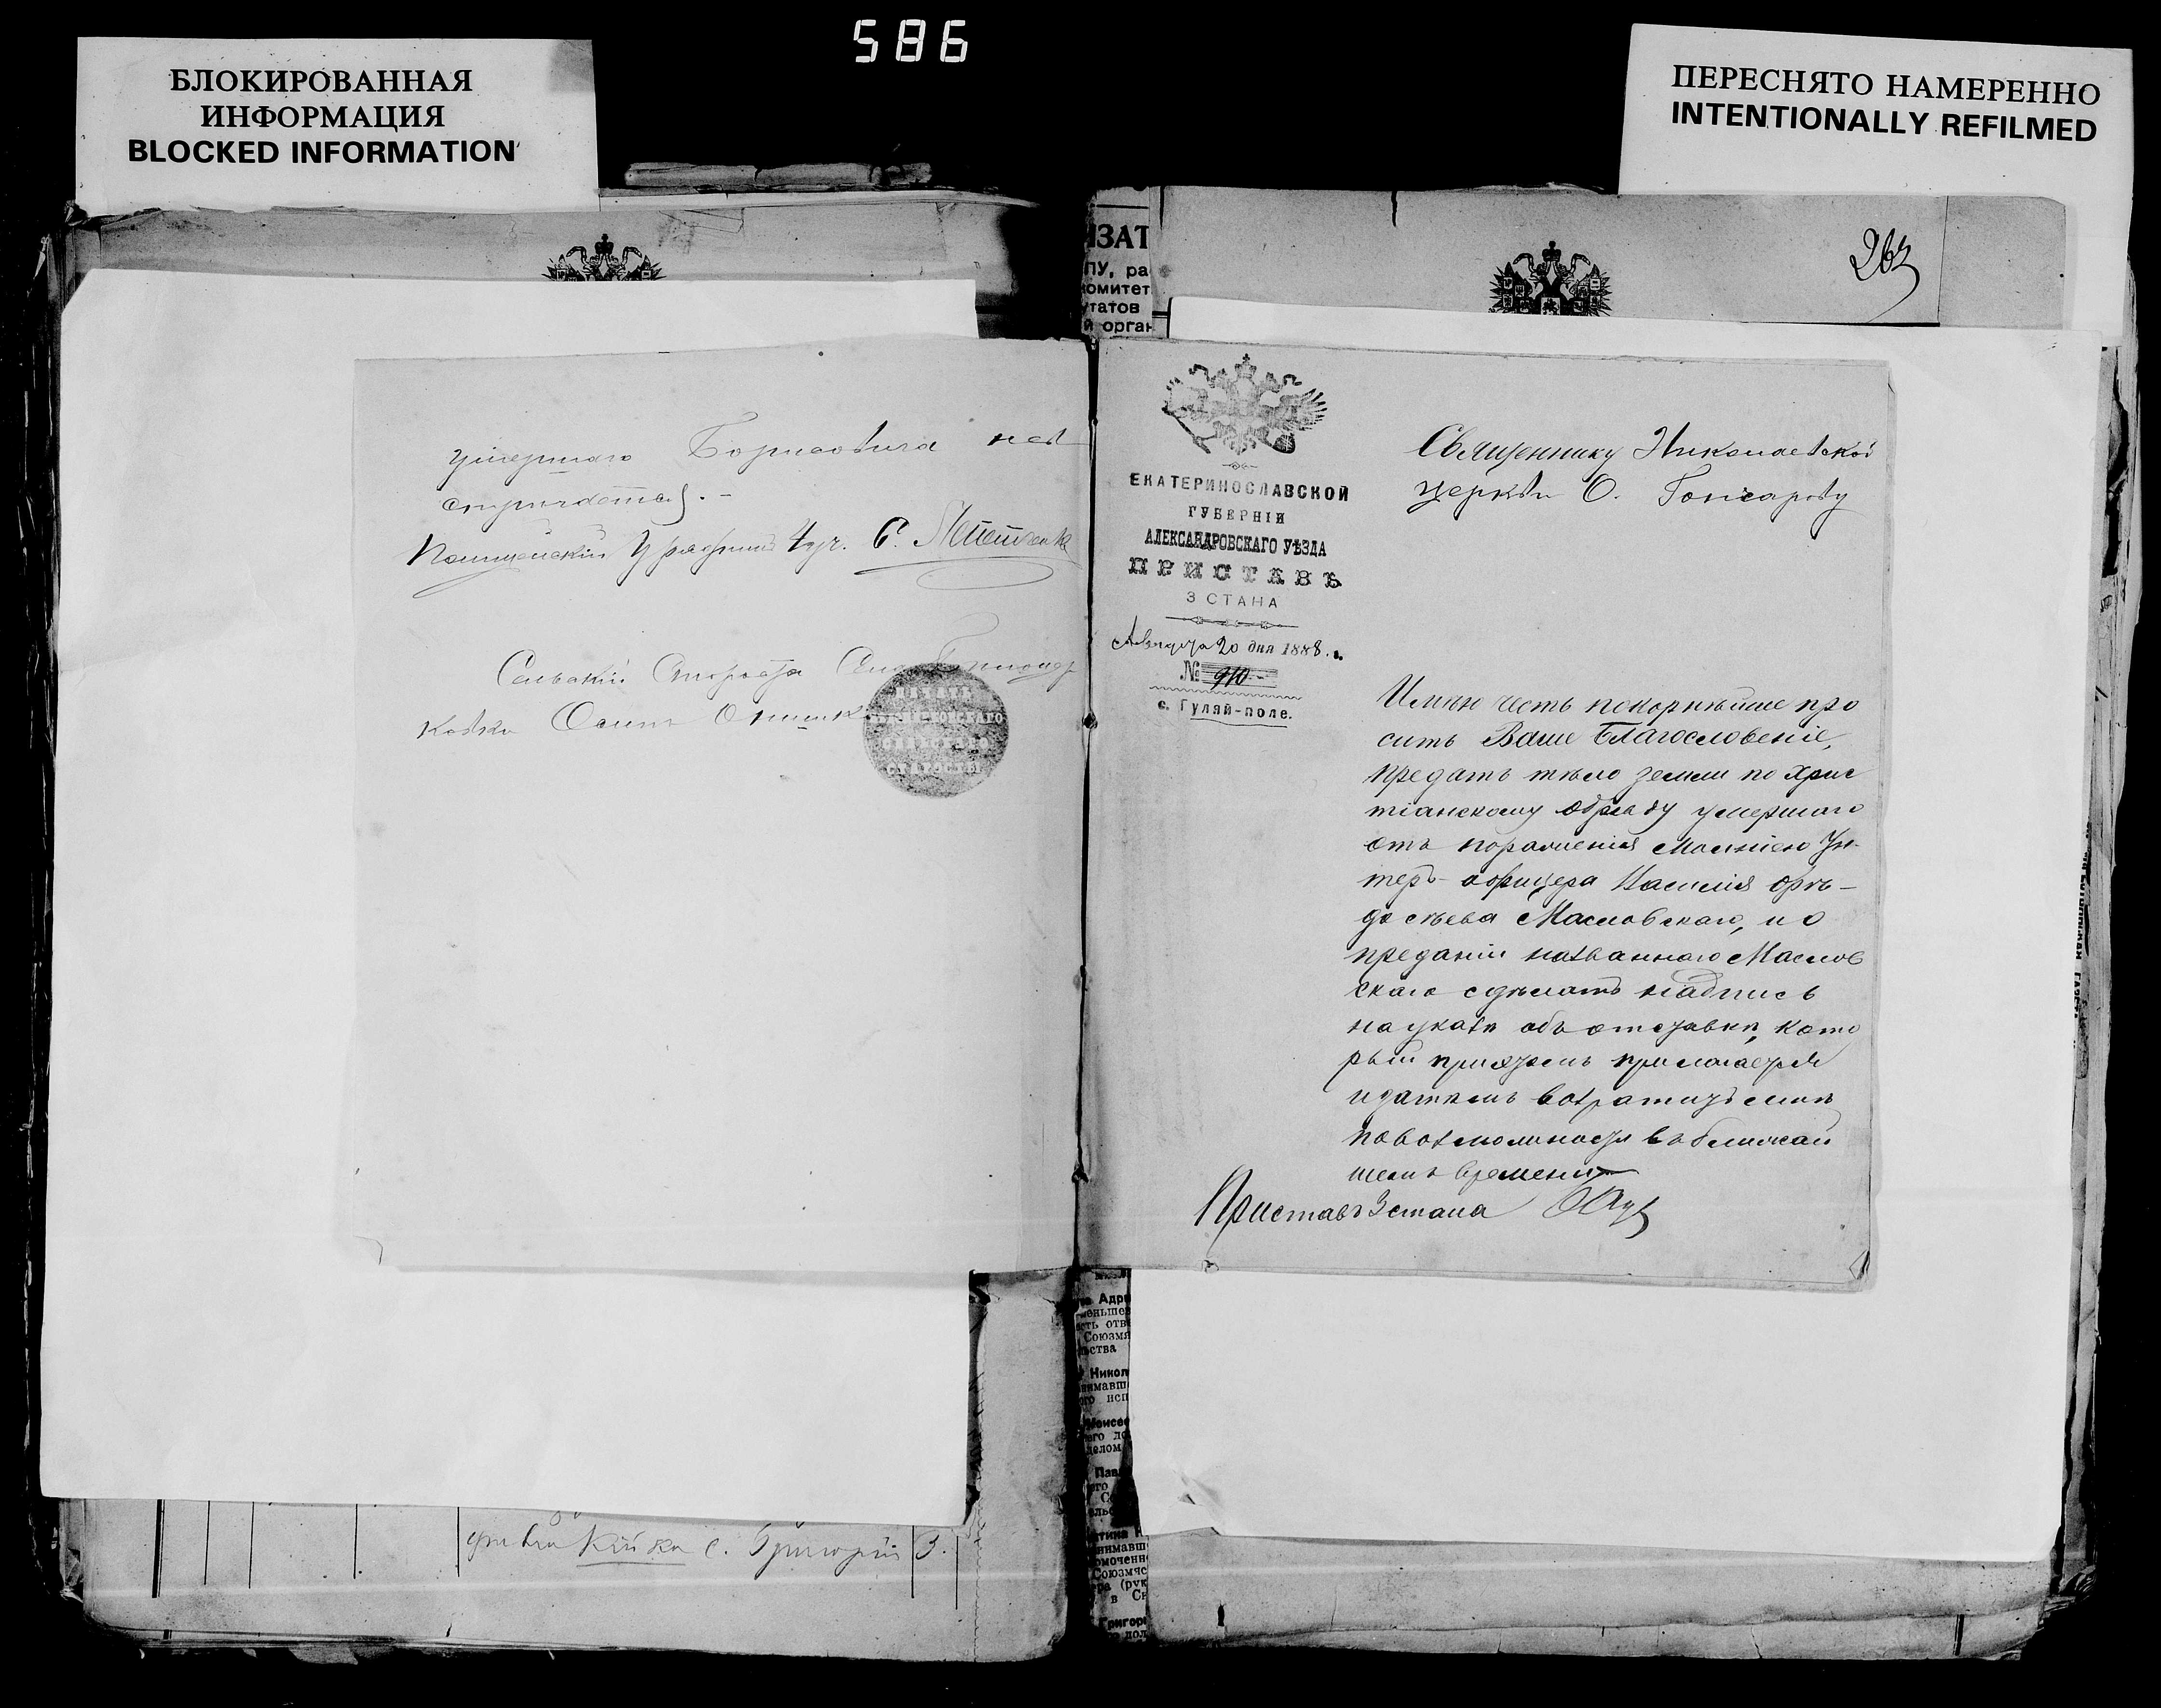 586
БЛОКИРОВАННАЯ
ИНФОРМАЦИЯ
BLOCKED INFORMATION
ПЕРЕСНЯТО НАМЕРЕННО
INTENTIONALLY REFILMED
умершаго Борисовича не
Полицейскій Урядник 4 уч. С.
Сельскій Староста
ковки Осипъ
ПЕЧАТЬ
СЕЛЬСКАГО
СТАРОСТЫ
с. Григорій 3.
ИЗАТ
ПУ, ра
комитет
утатов
й орган
263
ЕКАТЕРИНОСЛАВСКОЙ
ГУБЕРНІИ
АЛЕКСАНДРОВСКАГО УѢЗДА
ПРИСТАВЪ
3 СТАНА
Августа 20 дня 1888 г.
№ 910
с. Гуляй-поле.
Священнику Николаевской
церкви О. Гончарову
Имѣю честь покорнѣйше про
сить Ваше Благословеніе,
предать тѣло земли по Хрис
тіанскому обряду умершаго
отъ пораженія молніею Ун-
теръ-офицера Василія Фѣ-
досѣева Масловскаго, и о
преданіи названнаго Маслов
скаго сдѣлать надпись
на указѣ объ отставкѣ, кото
рый при семъ прилагается
и затѣмъ возратить мнѣ
по возможности въ ближай
шемъ времени
Приставъ 3 стана
Адри
меньшев
сть отв
Союзмя
ьства
Никол
нимавш
го исп
Моисее
его до
делом
Пав
нимавш
омоченн
Союзмяс
ра (рук
в Св
Григор